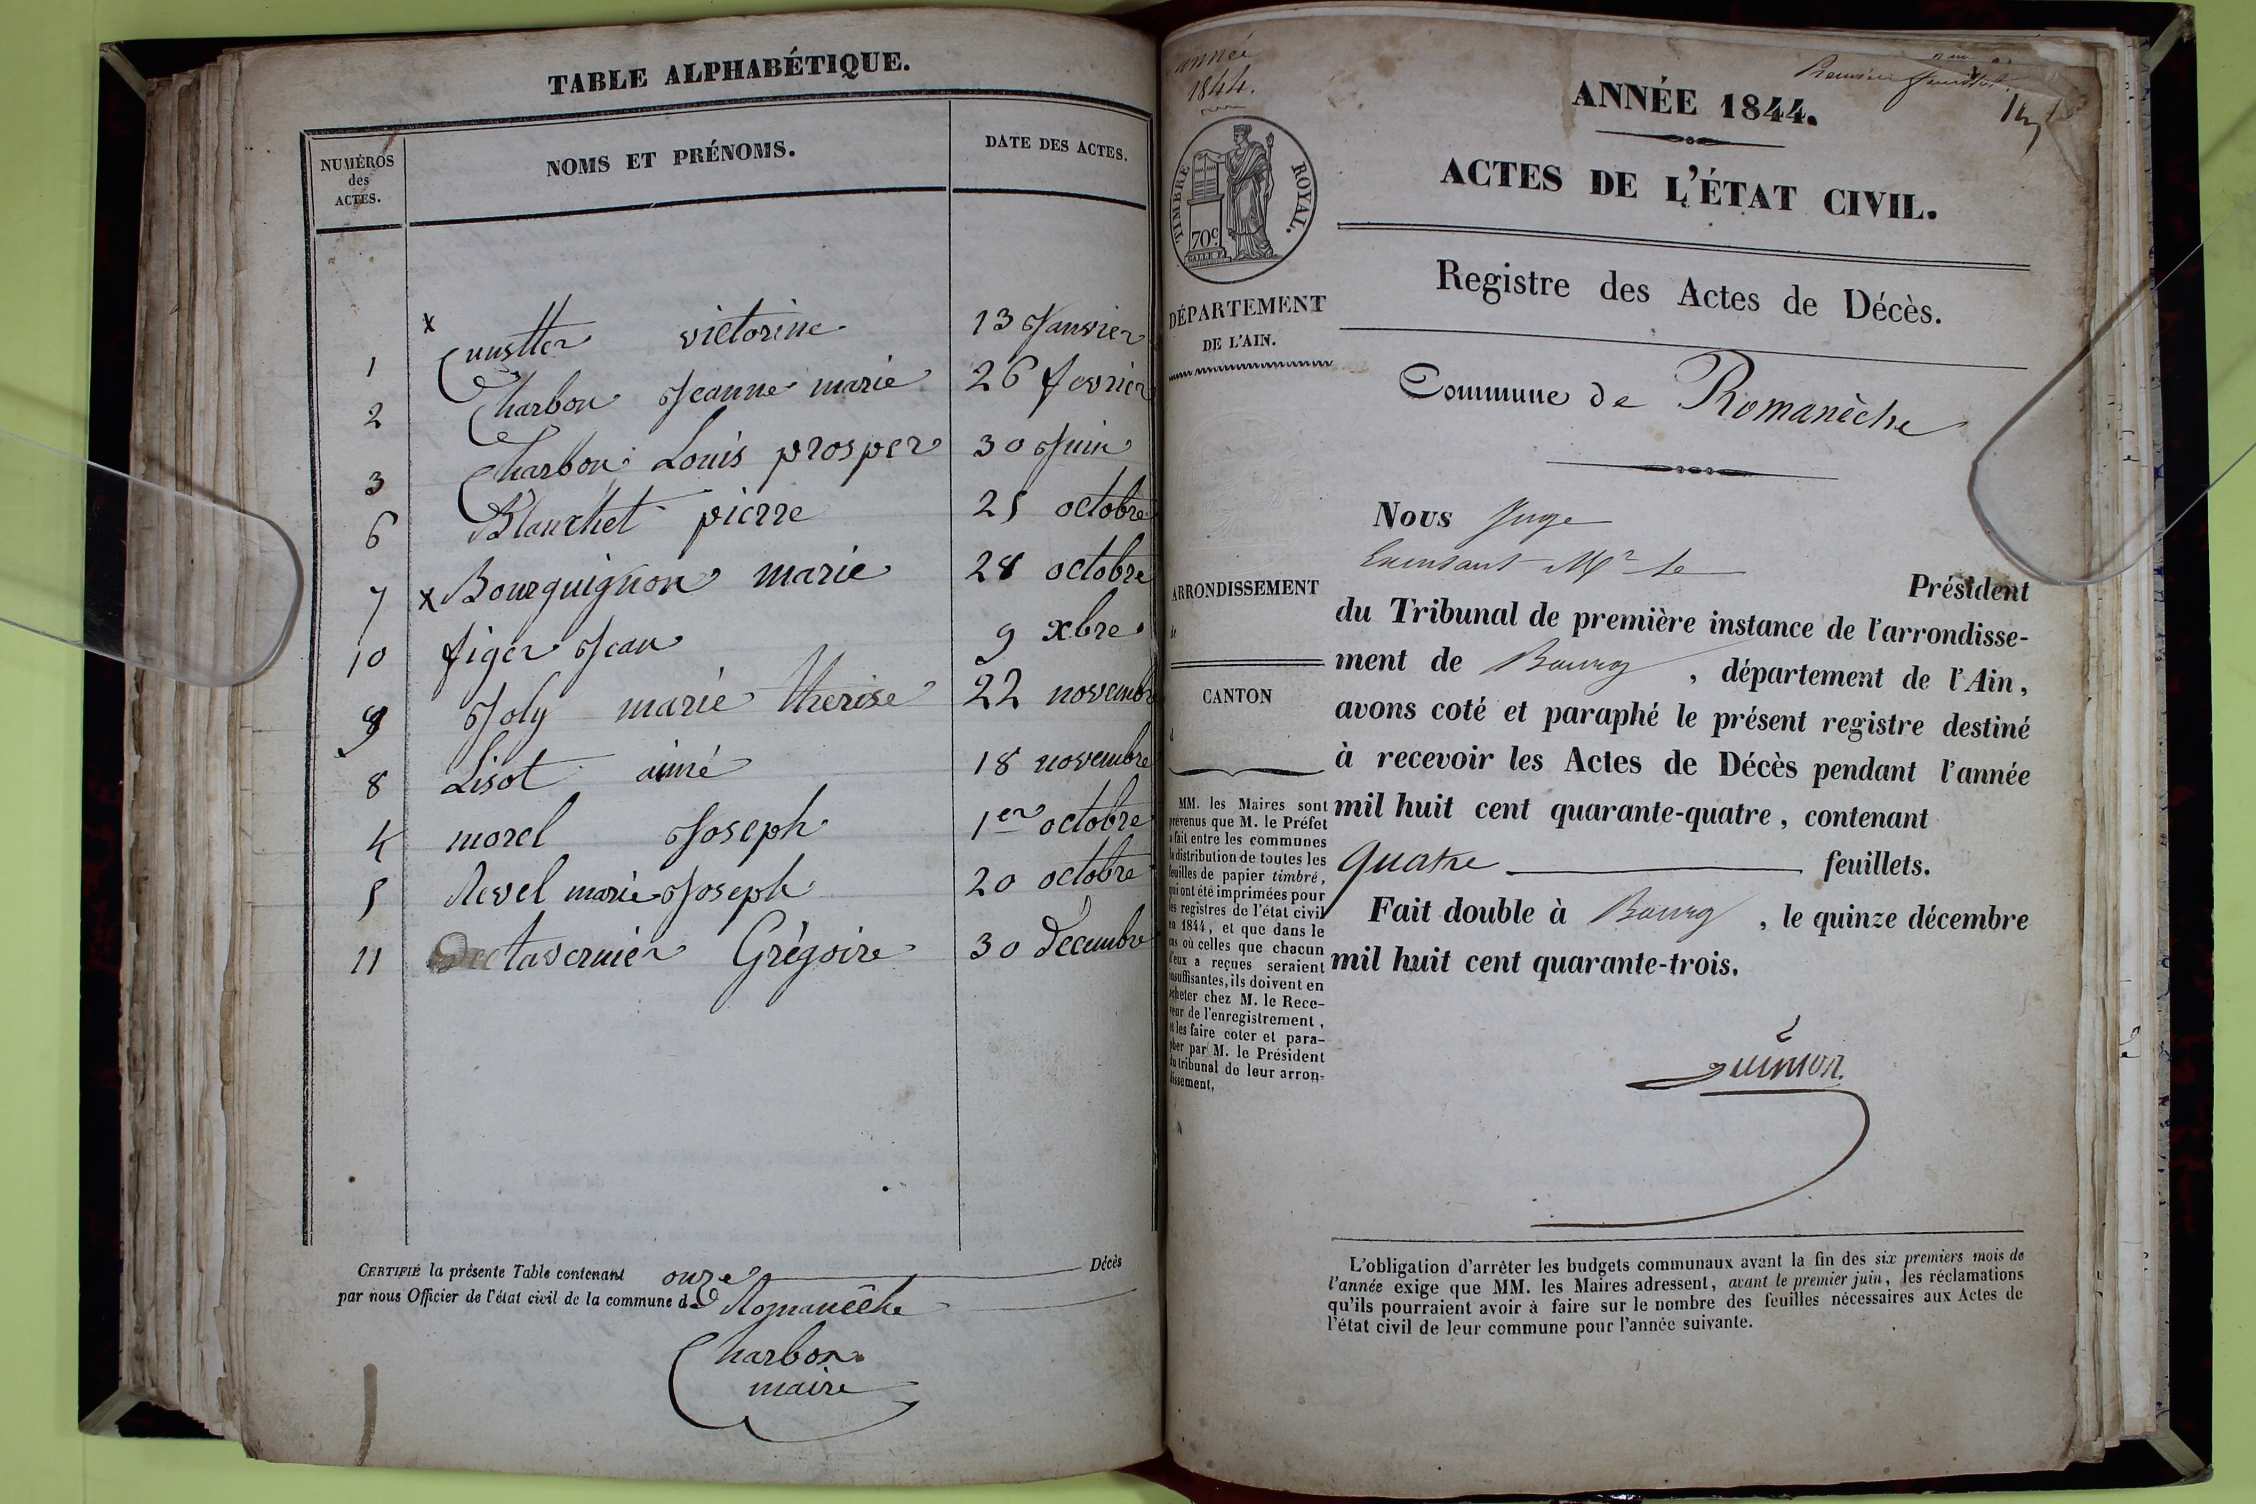 TABLE ALPHABÉTIQUE.
NUMÉROS des ACTES.
NOMS ET PRÉNOMS.
DATE DES ACTES.
1 x Cunstter victorine 13 Janvier
2 Charbon Jeanne marie 26 fevrier
3 Charbon Louis prosper 30 Juin
6 Blanchet pierre 25 octobre
7 x Bourguignon marie 28 octobre
10 figer Jean 9 xbre
9 Joly marie therise 22 novembre
8 Lisot aimé 18 novembre
4 morel Joseph 1er octobre
5 Revel marie Joseph 20 octobre
11 tavernier Grégoire 30 décembre
CERTIFIÉ la présente Table contenant onze Décès
par nous Officier de l'état civil de la commune de Romanêche
Charbon
maire
année
1844.
TIMBRE ROYAL.
70c
DÉPARTEMENT
DE L'AIN.
ARRONDISSEMENT
de
CANTON
d
MM. les Maires sont
prévenus que M. le Préfet
a fait entre les communes
la distribution de toutes les
feuilles de papier timbré,
qui ont été imprimées pour
les registres de l'état civil
en 1844, et que dans le
cas où celles que chacun
d'eux a reçues seraient
insuffisantes, ils doivent en
acheter chez M. le Rece-
veur de l'enregistrement,
et les faire coter et para-
pher par M. le Président
du tribunal de leur arron-
dissement.
Premier
ANNÉE 1844.
ACTES DE L'ÉTAT CIVIL.
Registre des Actes de Décès.
Commune de Romanèche
Nous Juge
Mr le
Président
du Tribunal de première instance de l'arrondisse-
ment de Bourg, département de l'Ain,
avons coté et paraphé le présent registre destiné
à recevoir les Actes de Décès pendant l'année
mil huit cent quarante-quatre, contenant
quatre feuillets.
Fait double à Bourg, le quinze décembre
mil huit cent quarante-trois.
L'obligation d'arrêter les budgets communaux avant la fin des six premiers mois de
l'année exige que MM. les Maires adressent, avant le premier juin, les réclamations
qu'ils pourraient avoir à faire sur le nombre des feuilles nécessaires aux Actes de
l'état civil de leur commune pour l'année suivante.